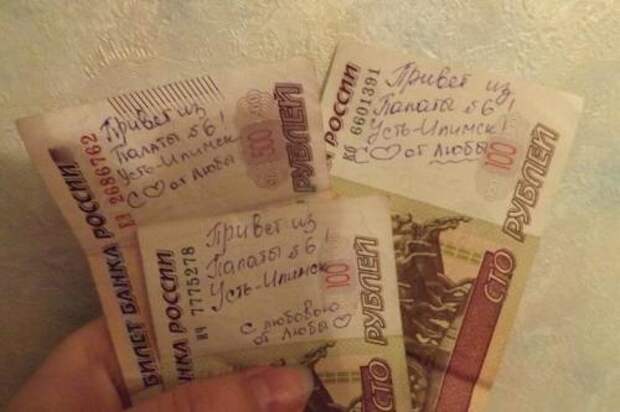 Привет из
Палаты №6!
Усть-Илимск
С ♡ от Люба
БИЛЕТ БАНКА РОССИИ
2686762
500
РУБЛЕЙ
Привет из
Палаты №6!
Усть-Илимск!
С ♡ от Любы
РОССИИ
кб 6601391
100
СТО РУБЛЕЙ
Привет из
Палаты №6!
Усть-Илимск
С любовью
от Любы ♡
НКА РОССИИ
нч 7775278
100
СТО РУБЛЕЙ